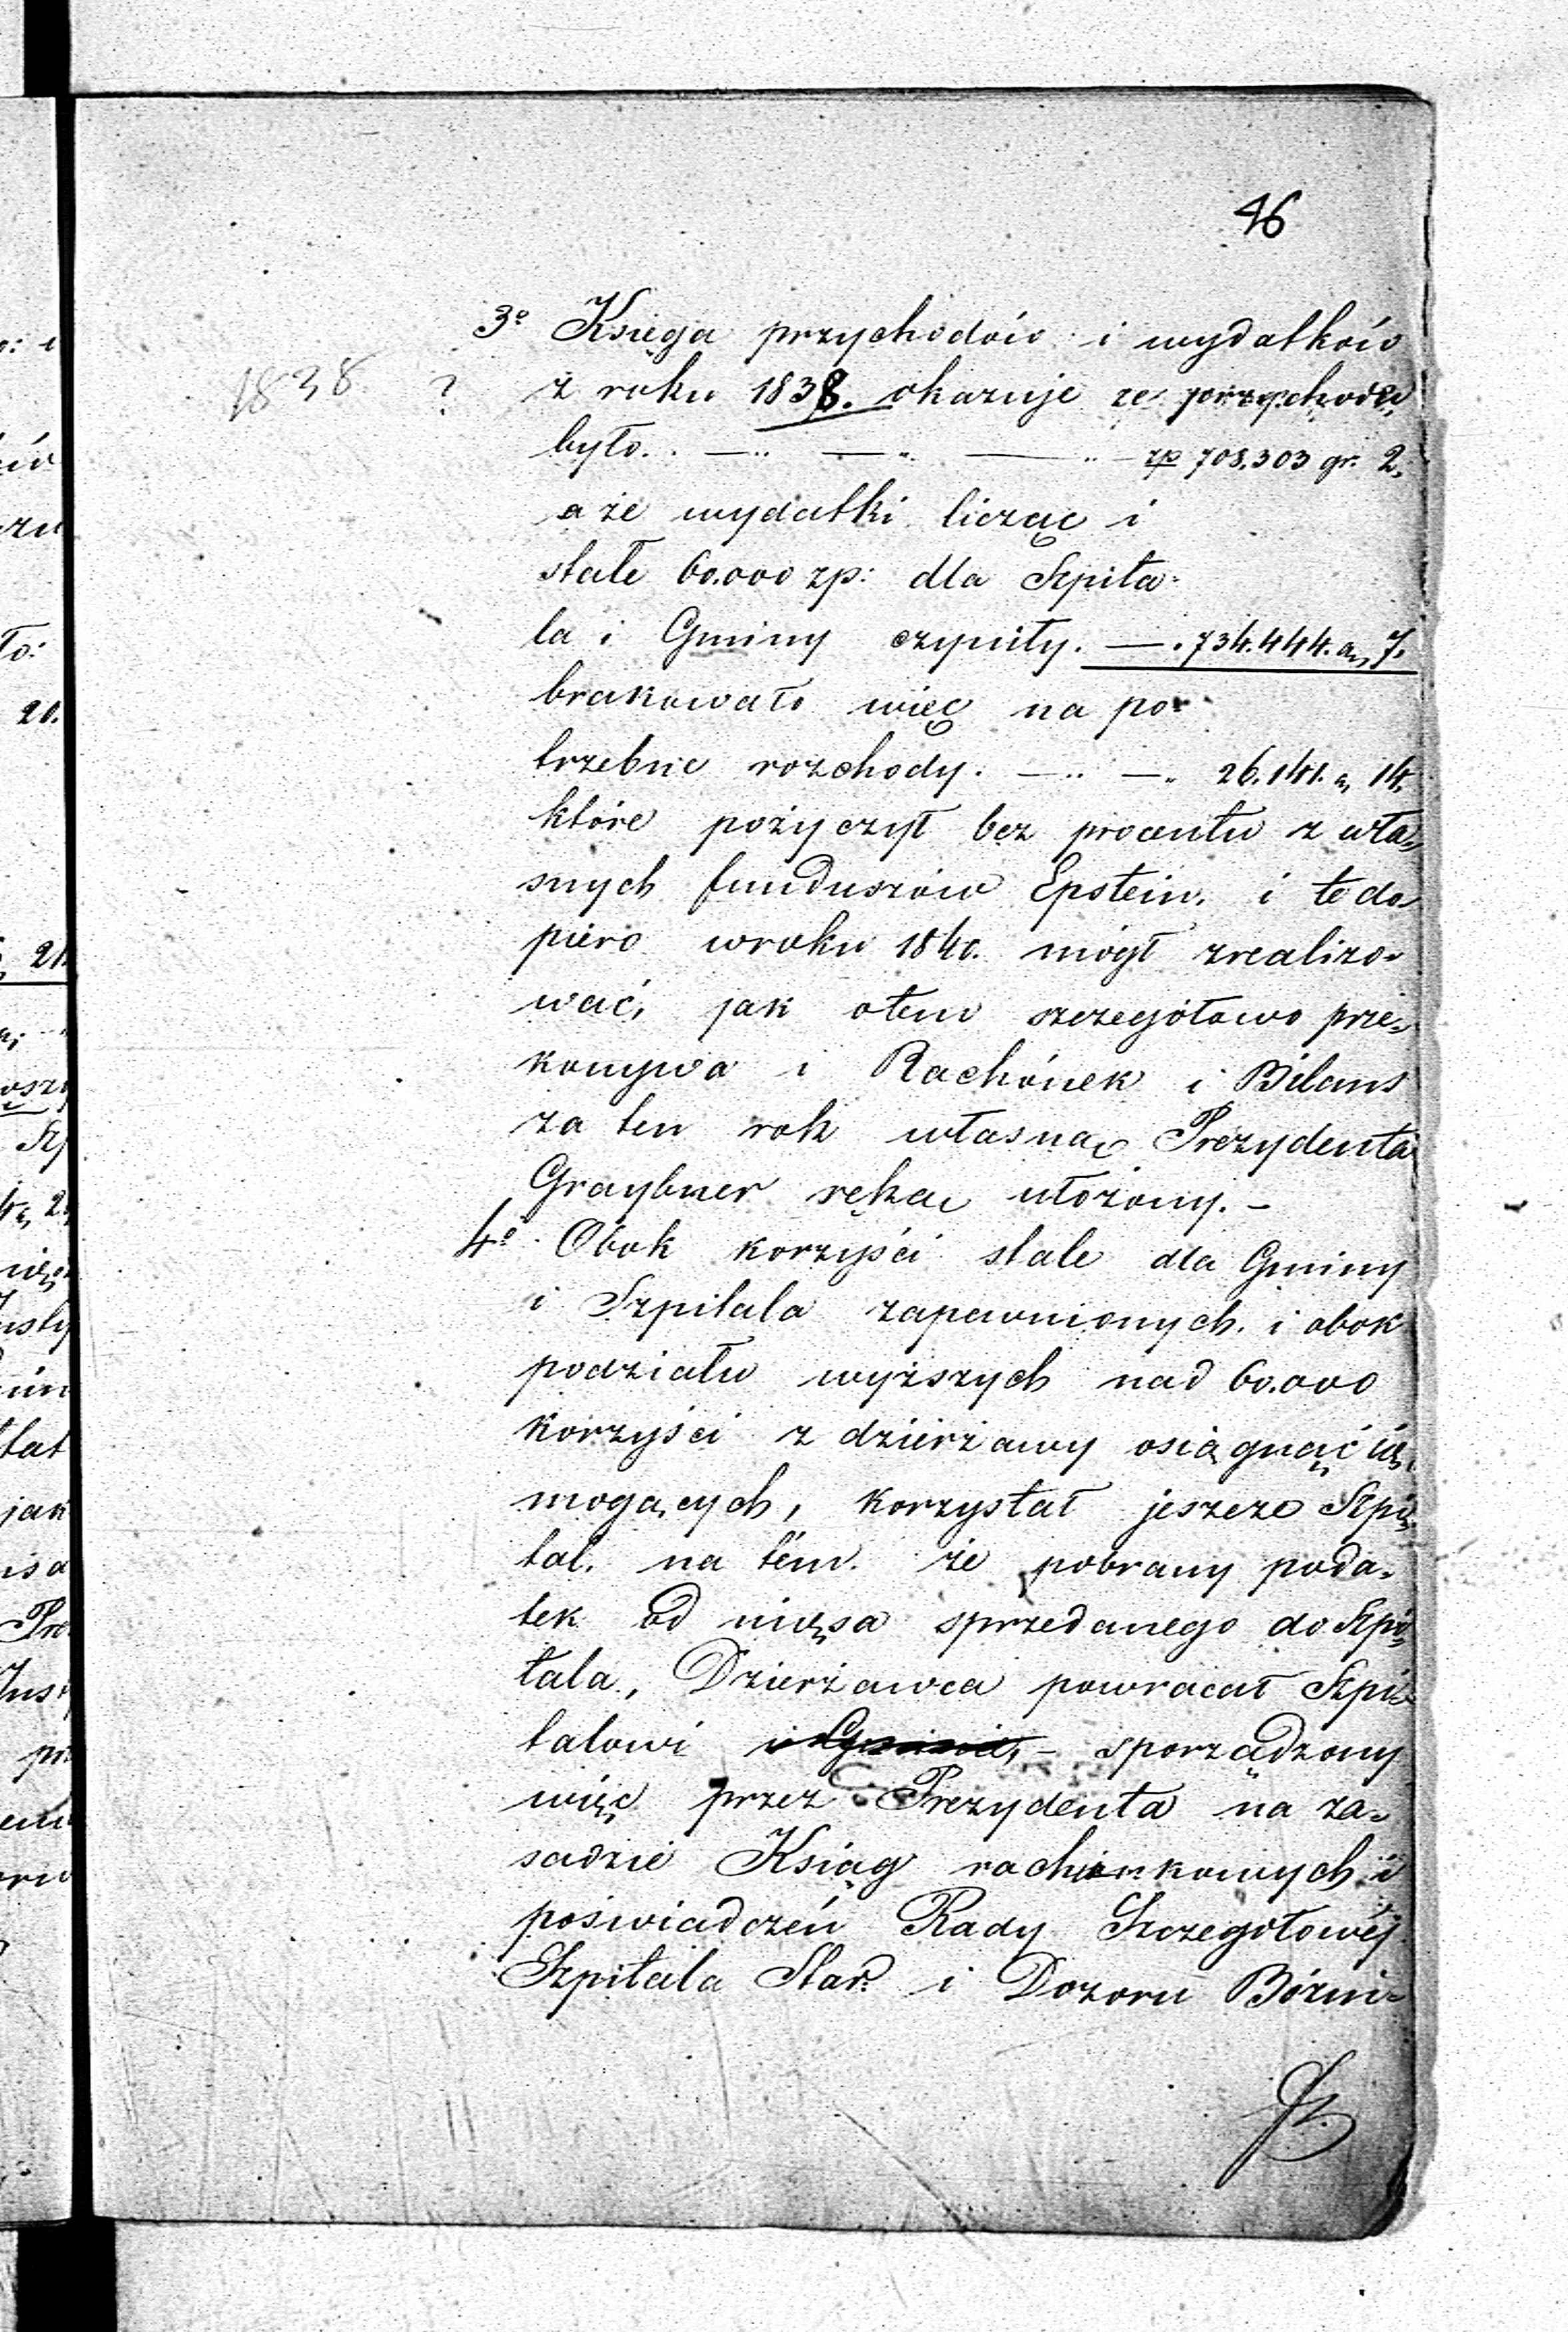 46
3º Księga przychodów i wydatków
1838 ? z roku 1838. okazuje że przychodu
było. . — .. — .. — .. — zp 708.303 gr. 2.
a że wydatki licząc i
stałe 60.000 zp: dla Szpita-
la i Gminy czyniły. — . 734.444. „ 7.
brakowało więc na po-
trzebne rozchody. — .. — .. 26.141. „ 14.
które pożyczył bez procentu z wła-
snych funduszów Epstein. i te do
piero wroku 1840. mógł zrealizo-
wać, jak otem szczegółowo prze-
konywa i Rachónek i Bilans
za ten rok własną Prezydenta
Graybner ręką ułożony. –
4º Obok korzyści stale dla Gminy
i Szpitala zapewnionych. i obok
podziału wyższych nad 60.000
korzyści z dzierżawy osiągnąć się
mogących, korzystał jeszcze Szpi-
tal. na tém. że pobrany poda-
tek od mięsa sprzedanego do Szpi-
tala, Dzierżawca powracał Szpi-
talowi i Gminie, – sporządzony
więc przez Prezydenta na za-
sadzie Ksiąg rachunkowych i
poświadczeń Rady Szczegółowéj
Szpitala Star. i Dozoru Bóżni-